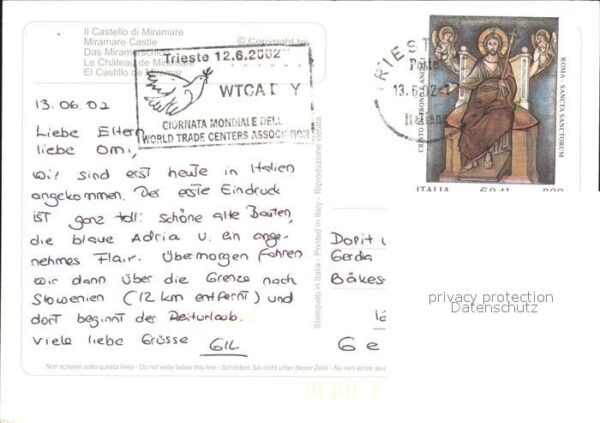 Il Castello di Miramare
Miramare Castle
Das Miramarschloß
Le Château de Miramar
El Castillo de Miramar
© Copyright by
Trieste 12.6.2002
WTCA D Y
GIORNATA MONDIALE DELL
WORLD TRADE CENTERS ASSOCIATION
TRIEST
Poste
13.6.02-1
Italiane
CRISTO IN TRONO E ANGE
ROMA - SANCTA SANCTORUM
ITALIA
0,41
800
13.06.02
Liebe Eltern
liebe Omi,
wir sind erst heute in Italien
angekommen. Der erste Eindruck
ist ganz toll: schöne alte Bauten,
die blaue Adria u. ein ange-
nehmes Flair. Übermorgen fahren
wir dann über die Grenze nach
Slowenien (12 km entfernt) und
dort beginnt der Reiturlaub.
Viele liebe Grüsse GIL
Stampato in Italia - Printed in Italy - Riproduzione vietata
Dorit u
Gerda
Bäkes
G e
privacy protection
Datenschutz
Non scrivere sotto questa linea - Do not write below this line - Schreiben Sie nicht unter dieser Zeile - Ne rien écrire au-d